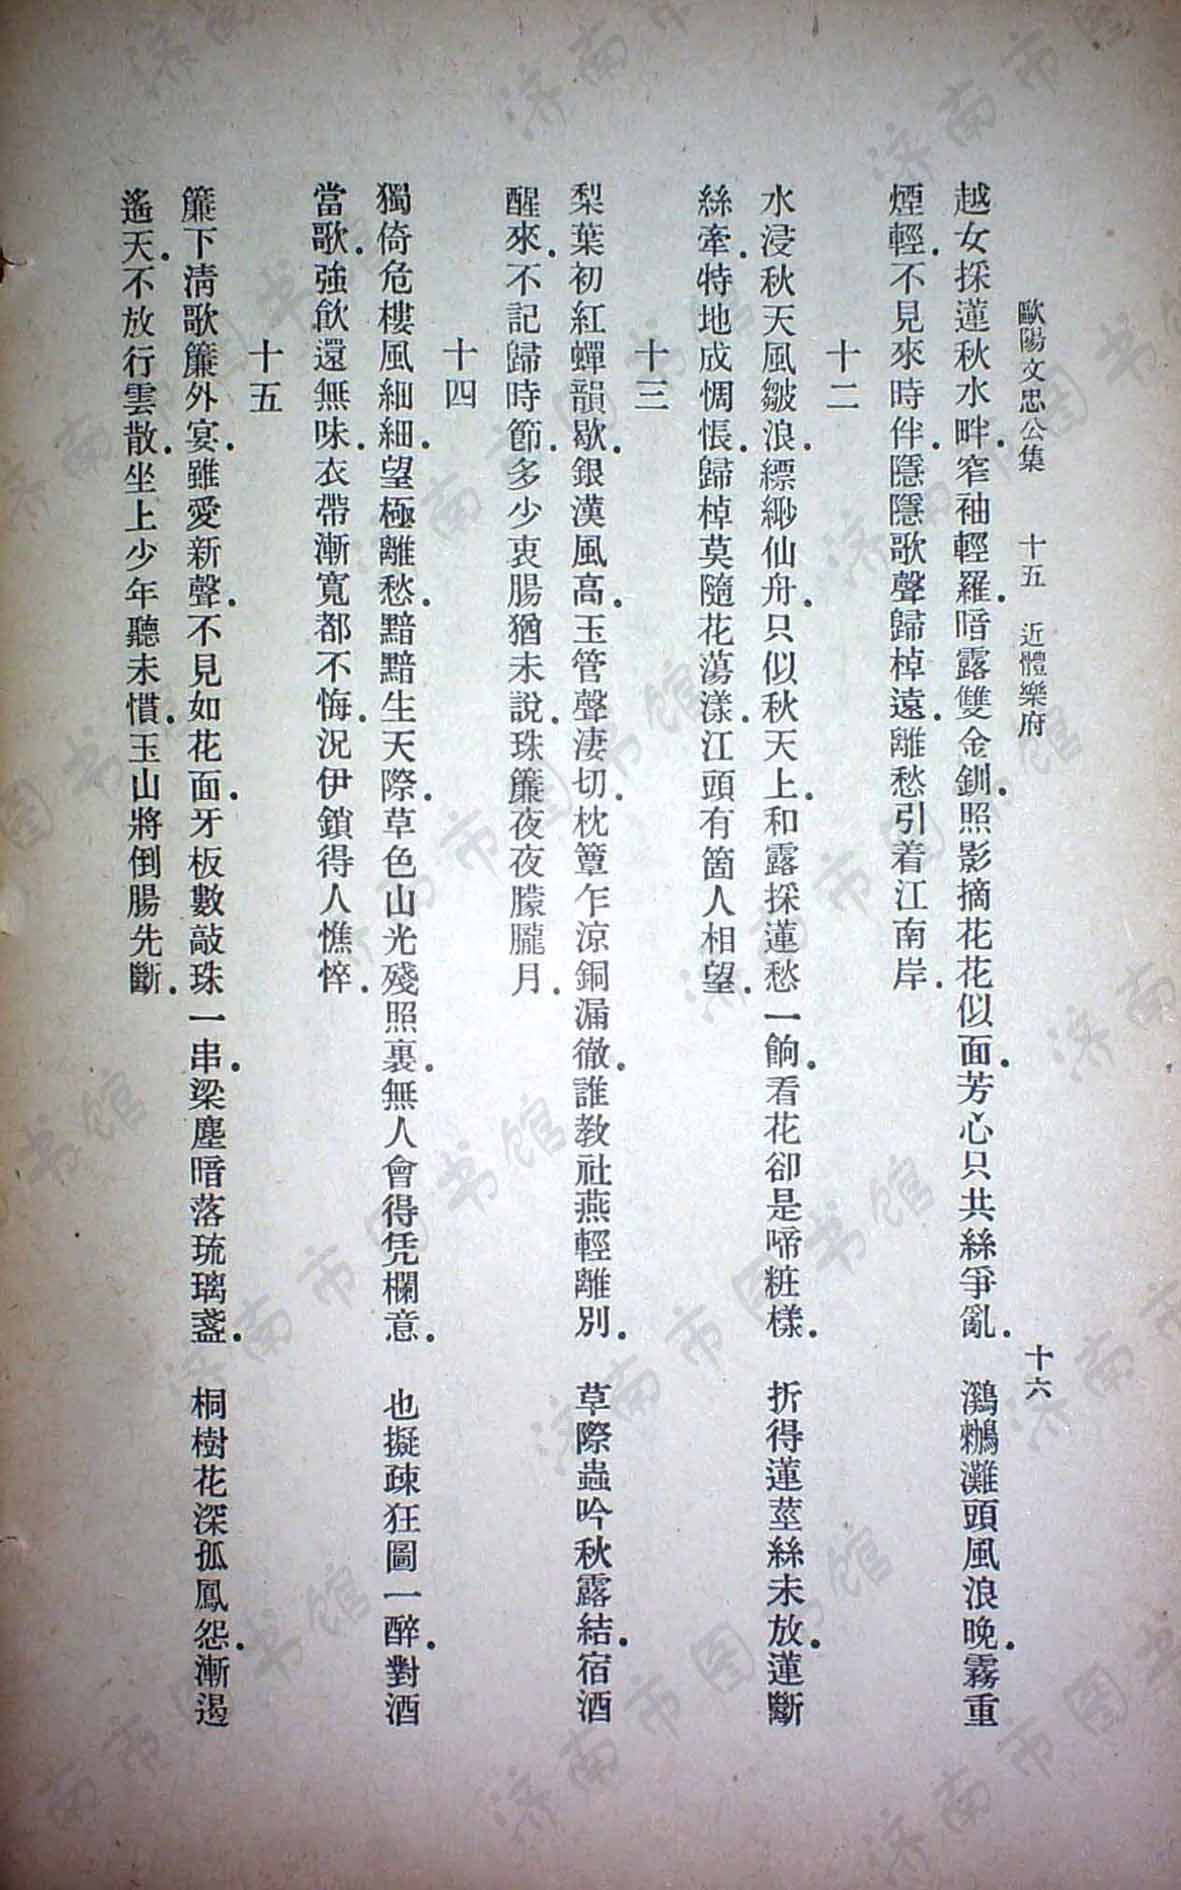 歐陽文忠公集　十五　近體樂府　十六
越女採蓮秋水畔．窄袖輕羅．暗露雙金釧．照影摘花花似面．芳心只共絲爭亂．　鸂鶒灘頭風浪晚．霧重
煙輕．不見來時伴．隱隱歌聲歸棹遠．離愁引着江南岸．
十二
水浸秋天風皺浪．縹緲仙舟．只似秋天上．和露採蓮愁一餉．看花卻是啼粧樣．　折得蓮莖絲未放．蓮斷
絲牽．特地成惆悵．歸棹莫隨花蕩漾．江頭有箇人相望．
十三
梨葉初紅蟬韻歇．銀漢風高．玉管聲淒切．枕簟乍涼銅漏徹．誰教社燕輕離別．　草際蟲吟秋露結．宿酒
醒來．不記歸時節．多少衷腸猶未說．珠簾夜夜朦朧月．
十四
獨倚危樓風細細．望極離愁．黯黯生天際．草色山光殘照裏．無人會得凭欄意．　也擬疎狂圖一醉．對酒
當歌．強飲還無味．衣帶漸寬都不悔．況伊鎖得人憔悴．
十五
簾下清歌簾外宴．雖愛新聲．不見如花面．牙板數敲珠一串．梁塵暗落琉璃盞．　桐樹花深孤鳳怨．漸遏
遙天．不放行雲散．坐上少年聽未慣．玉山將倒腸先斷．
济南市图书馆